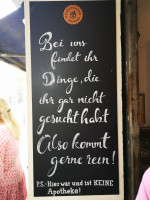 Bei uns
findet ihr
Dinge, die
ihr gar nicht
gesucht habt
Also kommt
gerne rein!
P.S.: Hier war und ist KEINE
Apotheke!